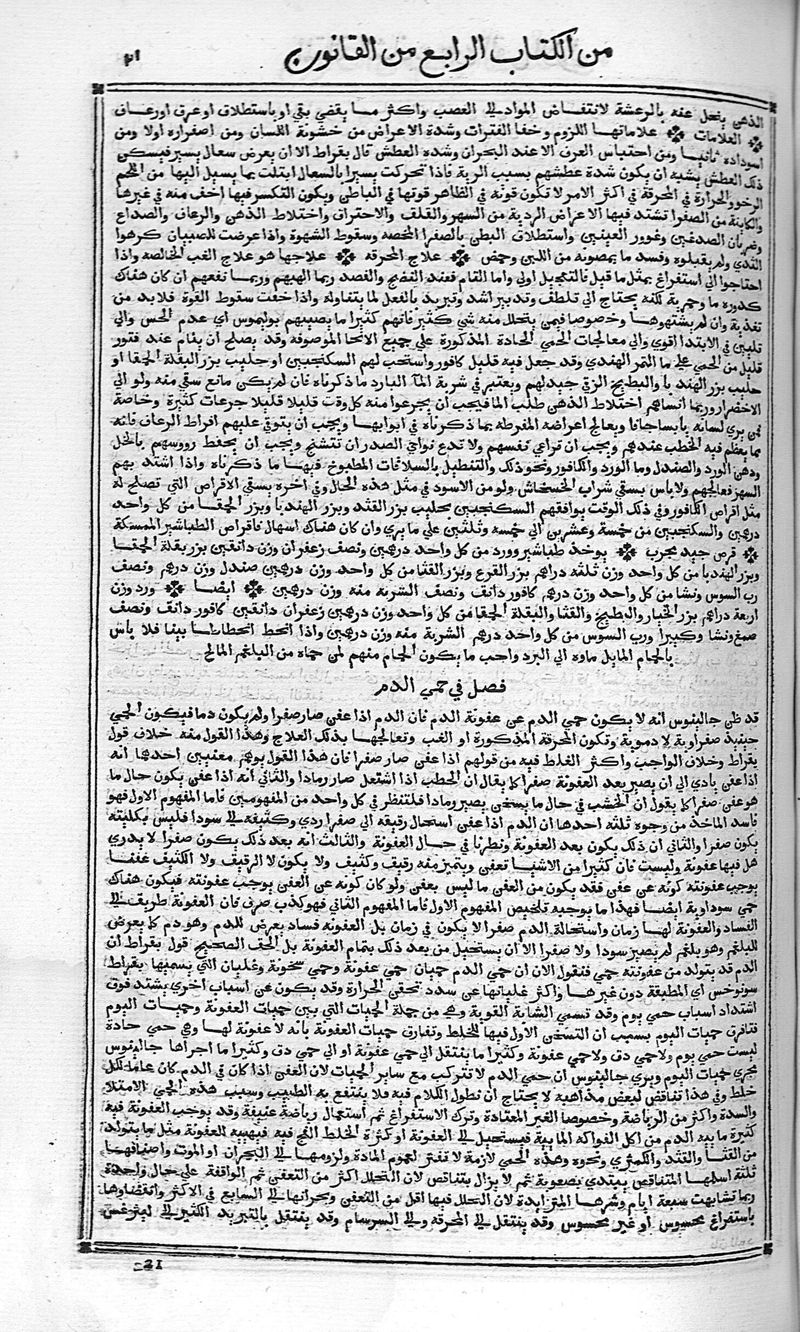 من الكتاب الرابع من القانون
الذهن ينحل عنه بالرعشة لانتفاض المواد الى العصب واكثر ما يقضي بقي او باستطلاق او عرق او رعاف
العلامات علاماتها اللزوم وخفا الفترات وشدة الاعراض من خشونة اللسان ومن اصفراره اولا ومن
اسوداده ثانيا ومن احتباس العرق الا عند البحران وشدة العطش قال بقراط الا ان يعرض سعال يسير فيسكن
ذلك العطش يشبه ان يكون شدة عطشهم بسبب الرية فاذا تحركت يسيرا بالسعال ابتلت بما يسيل اليها من اللحم
الرخو والحرارة في المحرقة في اكثر الامر لا تكون قوته في الظاهر قوتها في الباطن ويكون التكسر فيها اخف منه في غيرها
والكاينة من الصفرا تشتد فيها الاعراض الردية من السهر والقلق والاحتراق واختلاط الذهن والرعاف والصداع
وضربان الصدغين وغوور العينين واستطلاق البطن بالصفرا المحضه وسقوط الشهوة واذا عرضت للصبيان كرهوا
الثدي ولم يقبلوه وفسد ما يمصونه من اللبن وحمض علاج المحرقة علاجها هو علاج الغب الخالصه واذا
احتاجوا الى استفراغ بمثل ما قيل فالتعجيل اولى واما التام فعند النضج والفصد ربما الهبهم وربما نفعهم ان كان هناك
كدوره ما وحمرية لكنه يحتاج الى تلطف وتدبير اشد وتبريد بالفعل لما يتناوله واذا خفت سقوط القوة فلابد من
تغذية وان لم يشتهوها وخصوصا فيمن يتحلل منه شي كثير فانهم كثيرا ما يصيبهم بوليموس اي عدم الحس والى
تليين في الابتدا اقوي والى معالجات الحمى الحادة المذكورة على جميع الانحا الموصوفه وقد يصلح ان ينام عند فتور
قليل من الحمى على ما التمر الهندي وقد جعل فيه قليل كافور واستحب لهم السكنجبين او حليب بزر البقلة الحمقا او
حليب بزر الهندبا والبطيخ الزقي جيد لهم ويعتبر في شربة المآ البارد ما ذكرناه فان لم يكن مانع سقي منه ولو الى
الاخضرار وربما انساهم اختلاط الذهن طلب الما فيجب ان يجرعوا منه كل وقت قليلا قليلا جرعات كثيرة وخاصة
فمن يري لسانه يابسا جافا ويعالج اعراضه المفرطه بما ذكرناه في ابوابها ويجب ان يتوقي عليهم افراط الرعاف فانه
مما يعظم فيه الخطب عندهم ويجب ان تراعي نفسهم ولا تدع نواحي الصدر ان تتشنج ويجب ان يحفظ رووسهم بالخل
ودهن الورد والصندل وما الورد والكافور ونحو ذلك والتنطيل بالسلاقات المطبوخ فيها ما ذكرناه واذا اشتد بهم
السهر فعالجهم ولا باس بسقي شراب الخشخاش ولو من الاسود في مثل هذه الحال وفي اخره يسقي الاقراص التي تصلح له
مثل اقراص الكافور وفي ذلك الوقت يوافقهم السكنجبين بحليب بزر القثد وبزر الهندبا وبزر الحمقا من كل واحد
درهمين والسكنجبين من خمسة وعشرين الى خمسه وثلثين على ما يري وان كان هناك اسهال فاقراص الطباشير الممسكة
قرص جيد مجرب يوخذ طباشير وورد من كل واحد درهمين ونصف زعفران وزن دانقين بزر بقلة الحمقا
وبزر الهندبا من كل واحد وزن ثلثه دراهم بزر القرع وبزر القثا من كل واحد وزن درهمين صندل وزن درهم ونصف
رب السوس ونشا من كل واحد وزن درهم كافور دانق ونصف الشربه منه وزن درهمين ايضا ورد وزن
اربعة دراهم بزر الخيار والبطيخ والقثا والبقلة الحمقا من كل واحد وزن درهمين زعفران دانقين كافور دانق ونصف
صمغ ونشا وكثيرا ورب السوس من كل واحد درهم الشربة منه وزن درهمين واذا انحط انحطاطا بينا فلا باس
بالحمام المايل ماوه الى البرد واحب ما يكون الحمام منهم لمن حماه من البلغم المالح
فصل في حمي الدم
قد ظن جالينوس انه لا يكون حمي الدم عن عفونة الدم فان الدم اذا عفن صار صفرا ولم يكون دما فيكون الحمى
حينيذ صفراوية لا دموية وتكون المحرقة المذكورة او الغب وتعالجها بذلك العلاج وهذا القول منه خلاف قول
بقراط وخلاف الواجب واكثر الغلط فيه من قولهم اذا عفن صار صفرا فان هذا القول يوهم معنيين احدهما انه
اذا عفن يادي الى ان يصير بعد العفونة صفرا كما يقال ان الحطب اذا اشتعل صار رمادا والثاني انه اذا عفن يكون حال ما
هو عفن صفرا كما يقول ان الخشب في حال ما يسخن يصير رمادا فلننظر في كل واحد من المفهومين فاما المفهوم الاول فهو
فاسد الماخذ من وجوه ثلثه احدها ان الدم اذا عفن استحال رقيقه الى صفرا ردي وكثيفه الى سودا فليس بكليته
يكون صفرا والثاني ان ذلك يكون بعد العفونة ونظرنا في حال العفونة والثالث انه بعد ذلك يكون صفرا لا يدري
هل فيها عفونة وليست فان كثيرا من الاشيا تعفن ويتميز منه رقيق وكثيف ولا يكون لا الرقيق ولا الكثيف عفنا
يوجب عفونته كونه عن عفن فقد يكون من العفن ما ليس بعفن ولو كان كونه عن العفن يوجب عفونته فيكون هناك
حمي سوداوية ايضا فهذا ما يوجبه تلخيص المفهوم الاول فاما المفهوم الثاني فهو كذب صرف فان العفونة طريق الى
الفساد والعفونة لها زمان واستحالة الدم صفرا لا يكون في زمان بل العفونه فساد يعرض للدم وهو دم كما يعرض
للبلغم وهو بلغم لم يصير سودا ولا صفرا الا ان يستحيل من بعد ذلك بتمام العفونة بل الحق الصحيح قول بقراط ان
الدم قد يتولد من عفونته حمي فنقول الان ان حمي الدم حميان حمي عفونة وحمي سخونة وغليان التي يسميها بقراط
سونوخس اي المطبقة دون غيرها واكثر غليانها عن سدد تحقن الحرارة وقد يكون عن اسباب اخري يشتد فوق
اشتداد اسباب حمي يوم وقد تسمي الشابة القوية وهي من جملة الحميات التي بين حميات العفونة وحميات اليوم
فتفارق حميات اليوم بسبب ان التسخن الاول فيها للخلط وتفارق حميات العفونة بانه لا عفونة لها وهي حمي حادة
ليست حمي يوم ولا حمي دق ولا حمي عفونة وكثيرا ما ينتقل الى حمي عفونة او الى حمي دق وكثيرا ما اجراها جالينوس
مجري حميات اليوم ويري جالينوس ان حمي الدم لا تتركب مع ساير الحميات لان العفن اذا كان في الدم كان عاما لكل
خلط وفي هذا تناقض لبعض مذاهبه لا يحتاج ان نطول الكلام فيه فلا ينتفع به الطبيب وسبب هذه الحمى الامتلا
والسدة واكثر من الرياضة وخصوصا الغير المعتادة وترك الاستفراغ ثم استعمال رياضة عنيفة وقد يوجب العفونة فيه
كثيرة ماييه الدم من اكل الفواكه الماييه فيستحيل الى العفونة او كثرة الخلط الفج فيه فيهييه للعفونة مثل ما يتولد
من القثا والقثد والكمثري ونحوه وهذه الحمى لازمة لا تفتر لعموم المادة ولزومها الى البحران او الموت واصنافها
ثلثة اسلمها المتناقص يبتدي بصعوبة ثم لا يزال يتناقص لان التحلل اكثر من التعفن ثم الواقفة على حال واحدة
ربما تشابهت سبعة ايام وشرها المتزايدة لان التحلل فيها اقل من التعفن وبحرانها الى السابع في الاكثر وانقضاوها
باستفراغ محسوس او غير محسوس وقد ينتقل الى المحرقه والى السرسام وقد ينتقل بالتبريد الكثير الى ليثرغس